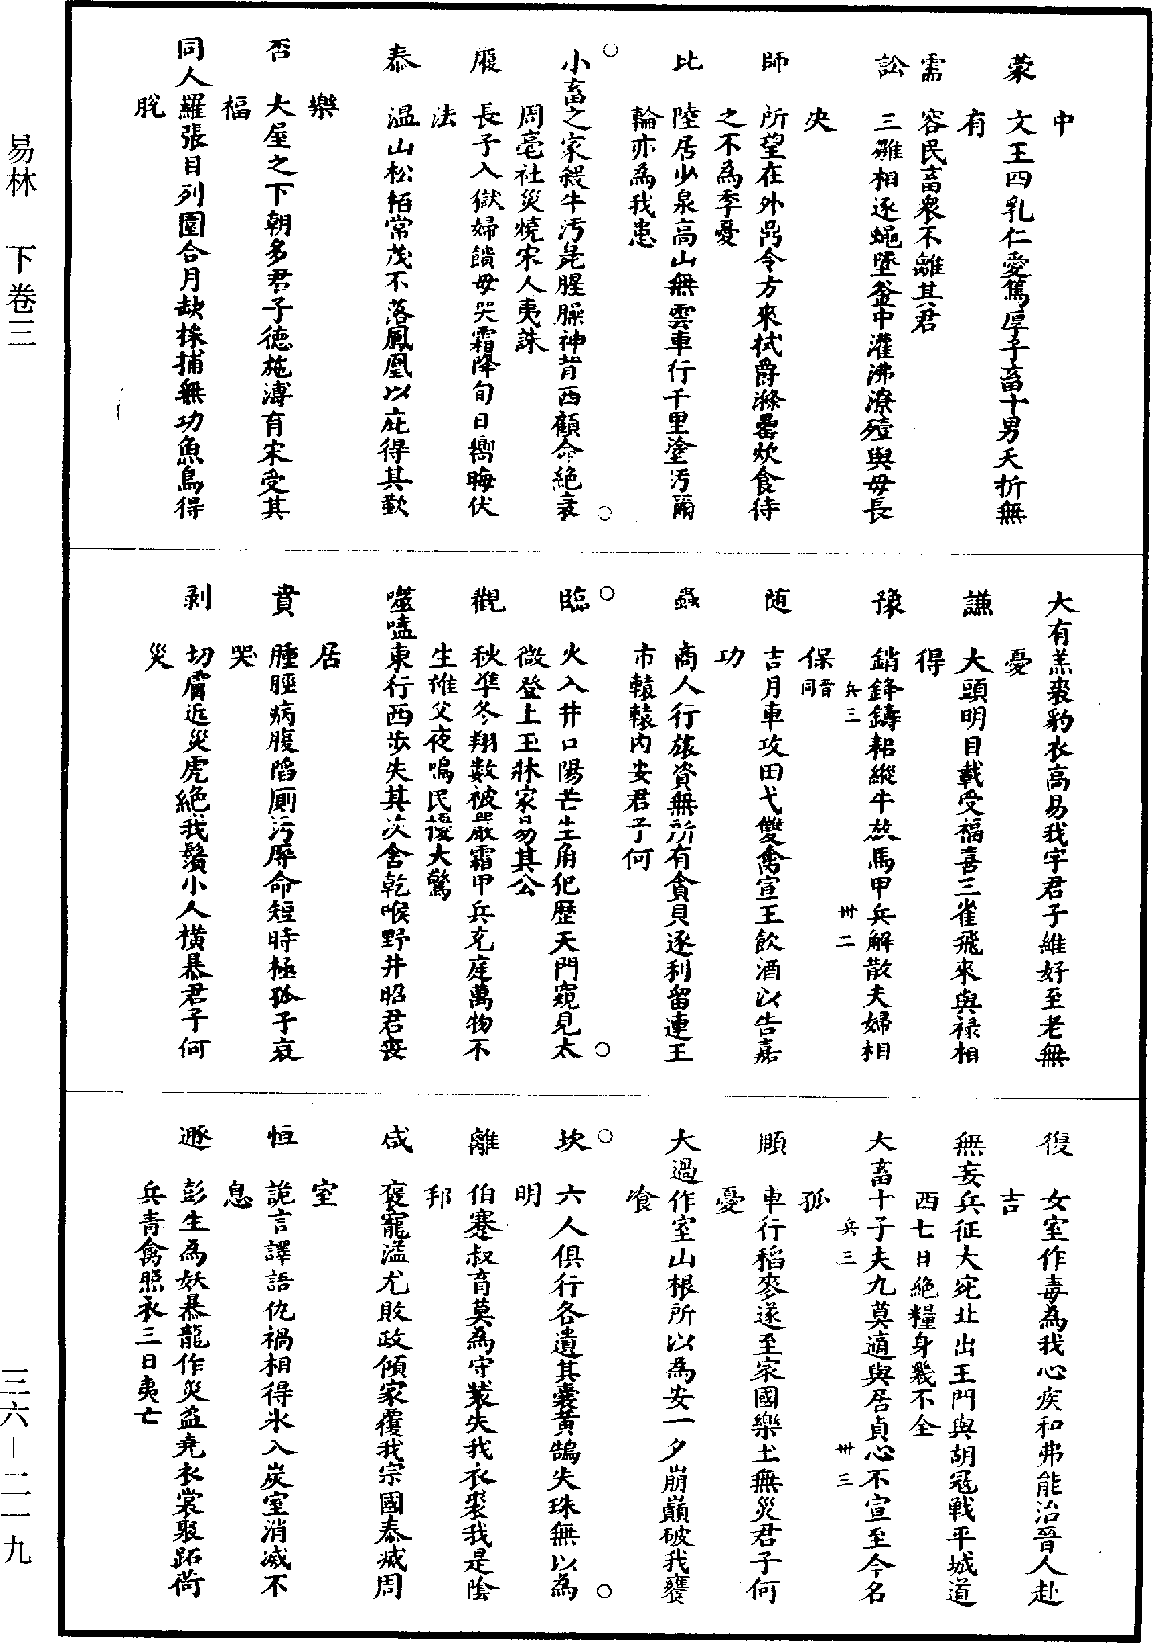 中
蒙 文王四乳仁愛篤厚子畜十男夭折無
有
需 容民畜衆不離其君
訟 三雞相逐蠅墜釜中灌沸潦殪與母長
央
師 所望在外鼎令方來拭爵滌罍炊食待
之不為季憂
比 陸居少泉高山無雲車行千里塗汚爾
輪亦為我患
小畜之家餧牛汚是腥臊神背西顧命絕衰
周亳社災燒宋人夷誅
履 長子入獄婦饋母哭霜降旬日嚮晦伏
法
泰 温山松栢常茂不落鳳凰以庇得其歡
樂
否 大屋之下朝多君子德施溥有宋受其
福
同人羅張目列圍合月缺採捕無功魚鳥得
脫
大有羔裘豹衣高易我宇君子維好至老無
憂
謙 大頭明目載受福喜三雀飛來與祿相
得
豫 銷鋒鑄耜縱牛放馬甲兵解散夫婦相
保同音
兵三 卅二
随 吉月車攻田弋雙禽宣王飲酒以告嘉
功
蟲 商人行旅資無所有貪貝逐利留連王
市轅轅内安君子何
臨 火入井口陽芒生角犯歷天門窺見太
微登上玉牀家易其公
觀 秋隼冬翔數被嚴霜甲兵充庭萬物不
生雄父夜鳴民擾大驚
噬嗑東行西步失其次舍乾喉野井昭君喪
居
賁 腫脛病腹陷厠汚辱命短時極孤子哀
哭
剥 切膚近災虎絶我鬚小人横暴君子何
災
復 女室作毒為我心疾和弗能治晉人赴
吉
無妄兵征大宛北出王門與胡冦戰平城道
西七日絶糧身幾不全
大畜十子夫九莫適與居貞心不宣至今名
孤
兵三 卅三
順 車行稻麥遂至家國樂土無災君子何
憂
大過作室山根所以為安一夕崩巔破我甕
飡
坎 六人俱行各遺其囊黄鵠失珠無以為
明
離 伯蹇叔盲莫為守裝失我衣裘我是陰
邦
咸 褒寵溢尤敗政傾家覆我宗國秦滅周
室
恒 詭言譯語仇禍相得氷入炭室消滅不
息
遯 彭生為妖暴龍作災盗堯衣裳聚跖荷
兵青禽照夜三日夷亡
易林 下卷三
三六-二一九